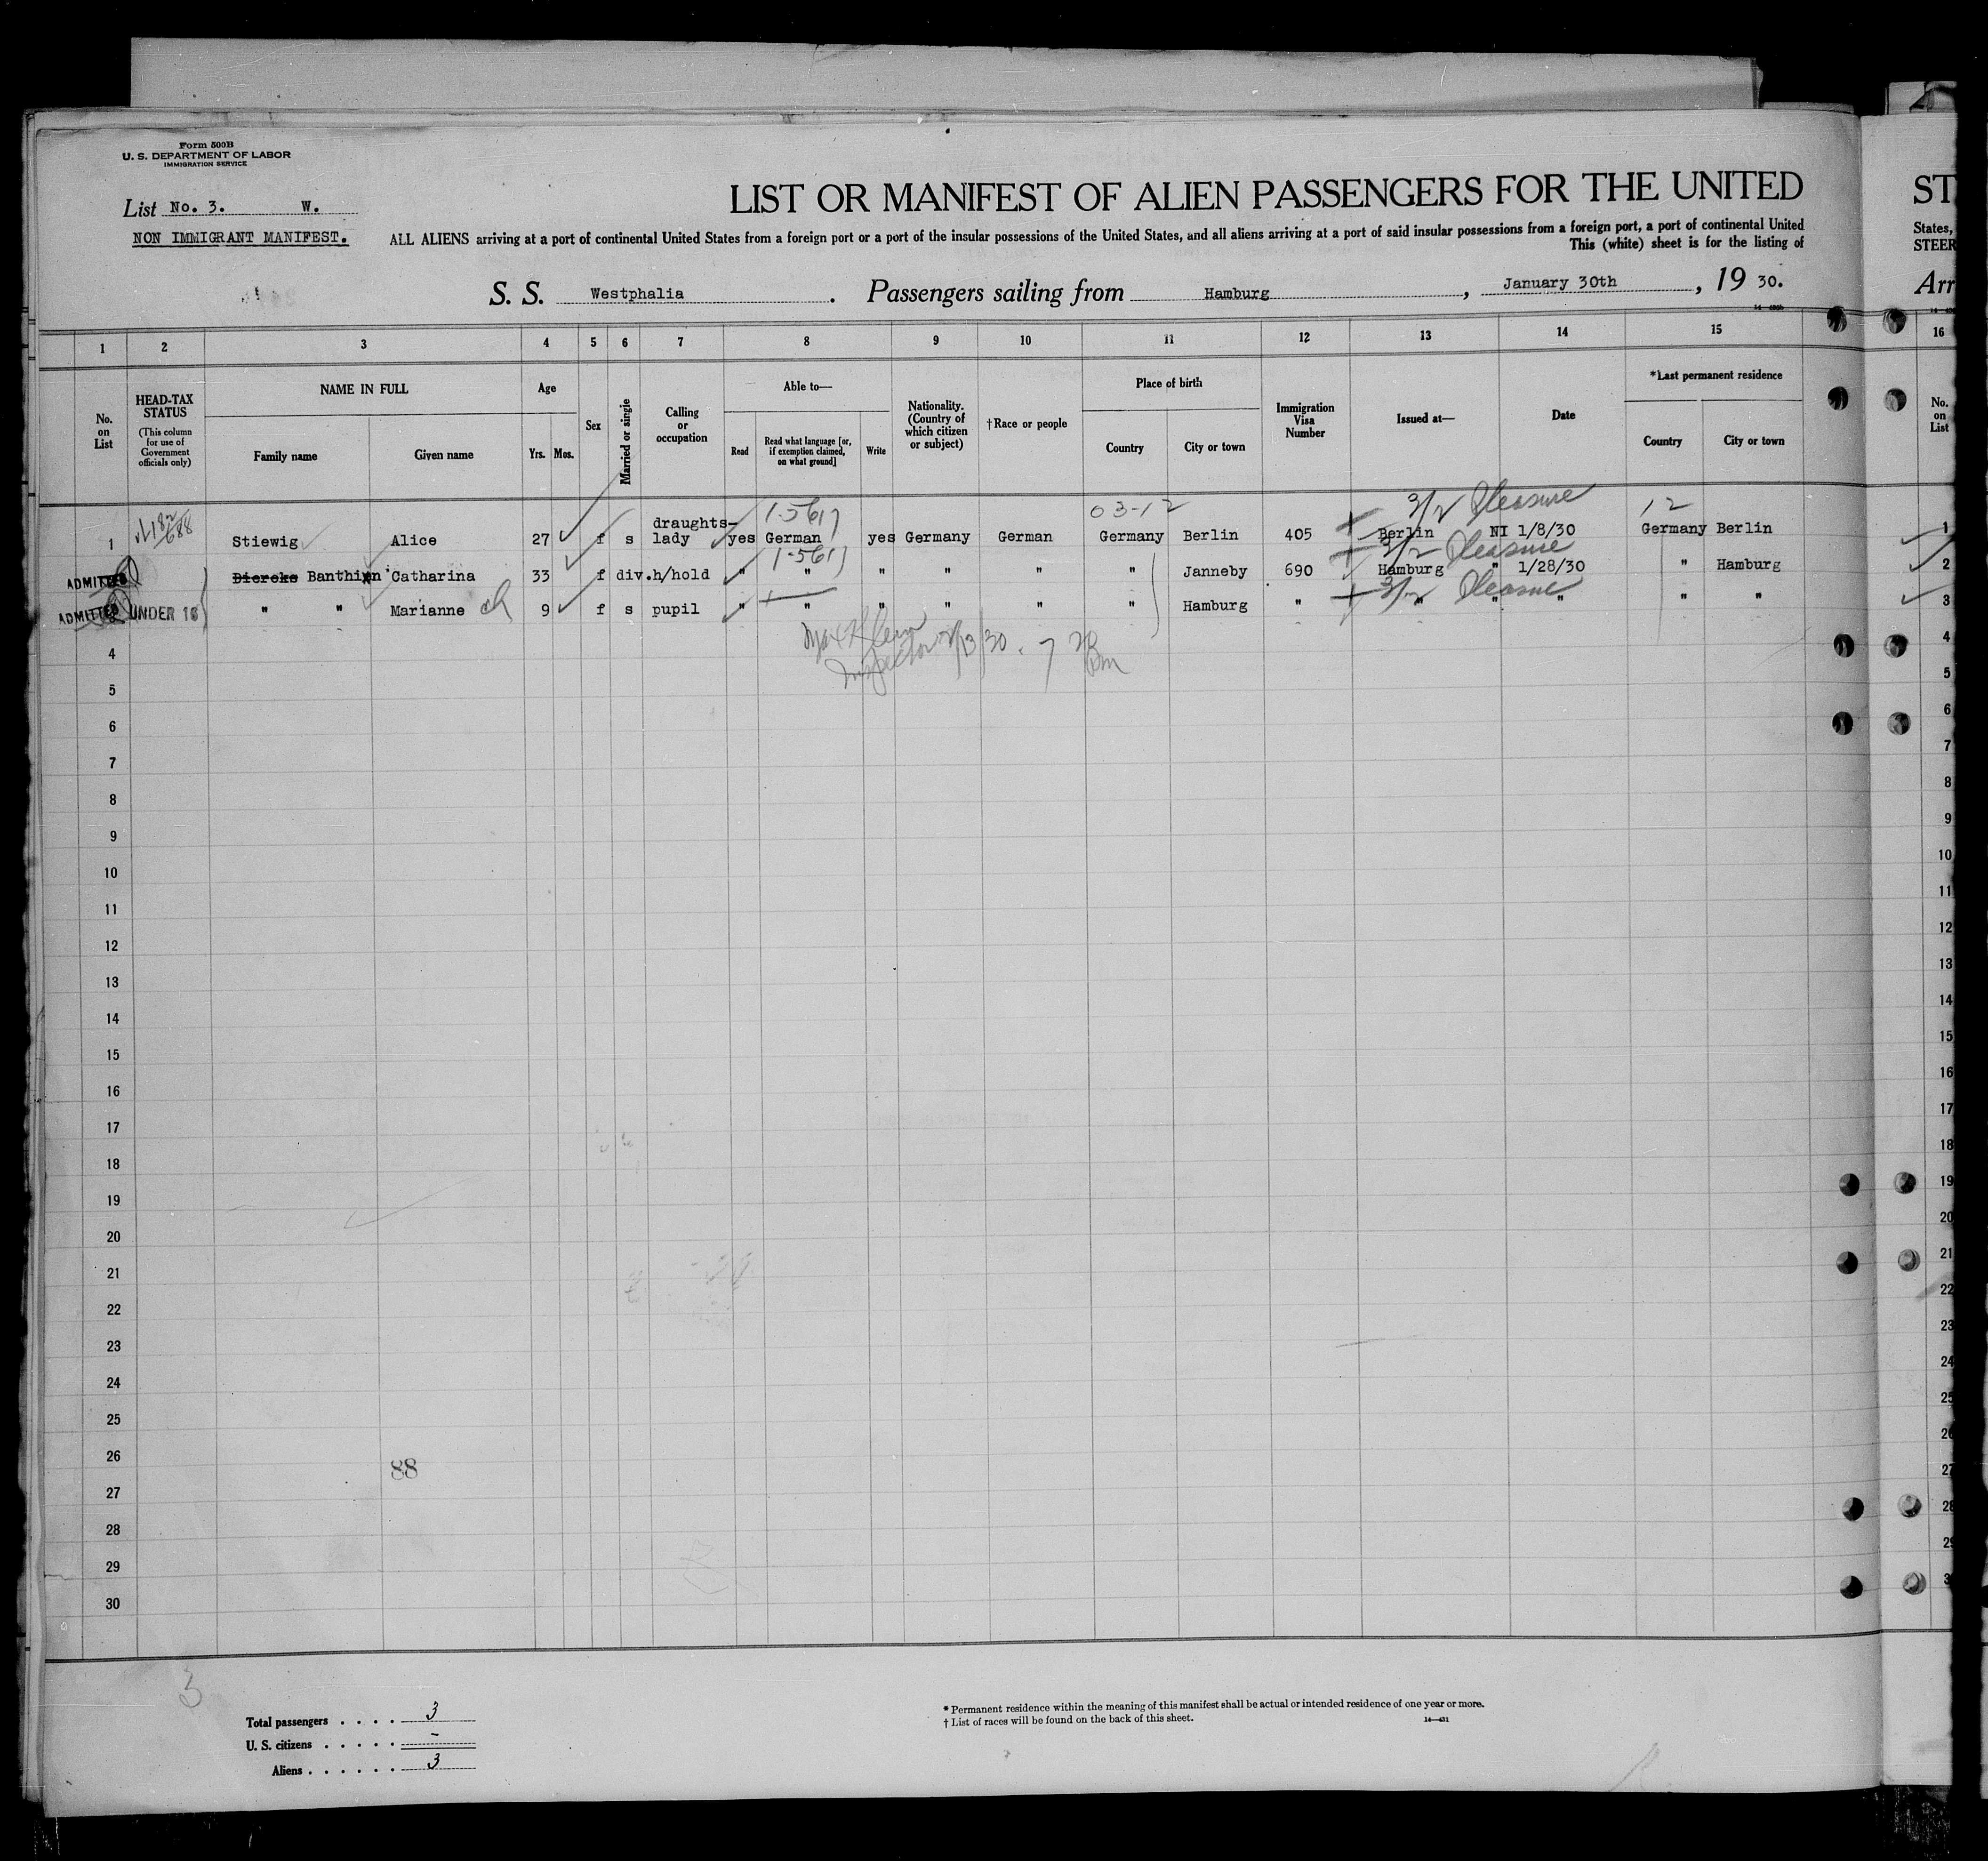 Form 500B
U. S. DEPARTMENT OF LABOR
IMMIGRATION SERVICE
List No. 3. W.
NON IMMIGRANT MANIFEST.
LIST OR MANIFEST OF ALIEN PASSENGERS FOR THE UNITED
ST
ALL ALIENS arriving at a port of continental United States from a foreign port or a port of the insular possessions of the United States, and all aliens arriving at a port of said insular possessions from a foreign port, a port of continental United
States,
This (white) sheet is for the listing of
STEER
S. S. Westphalia . Passengers sailing from Hamburg , January 30th , 19 30.
Arr
1 2 3 4 5 6 7 8 9 10 11 12 13 14 15 16
No. on List
HEAD-TAX STATUS
(This column for use of Government officials only)
NAME IN FULL
Family name Given name
Age
Yrs. Mos.
Sex
Married or single
Calling or occupation
Able to—
Read
Read what language [or, if exemption claimed, on what ground]
Write
Nationality. (Country of which citizen or subject)
†Race or people
Place of birth
Country City or town
Immigration Visa Number
Issued at—
Date
*Last permanent residence
Country City or town
No. on List
1-5617 03-12 3/2 Pleasure 12
1 Stiewig Alice 27 f s draughts-lady yes German yes Germany German Germany Berlin 405 Berlin NI 1/8/30 Germany Berlin 1
1-5617 3/2 Pleasure
ADMITTED Diercks Banthien Catharina 33 f div. h/hold " " " " " " Janneby 690 Hamburg " 1/28/30 " Hamburg 2
3/2 Pleasure
ADMITTED UNDER 16 " " Marianne ch 9 f s pupil " " " " " " Hamburg " " " " " " 3
Inspector 2/13/30. 7 20 pm
4 4
5 5
6 6
7 7
8 8
9 9
10 10
11 11
12 12
13 13
14 14
15 15
16 16
17 17
18 18
19 19
20 20
21 21
22 22
23 23
24 24
25 25
26 26
88
27 27
28 28
29 29
30
3
Total passengers . . . . 3
U. S. citizens . . . . . -
Aliens . . . . . . 3
* Permanent residence within the meaning of this manifest shall be actual or intended residence of one year or more.
† List of races will be found on the back of this sheet.